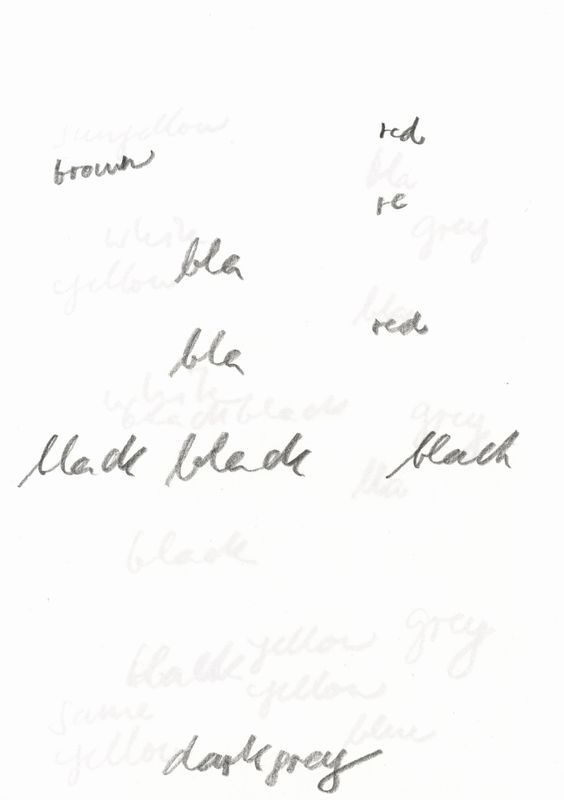 sunyellow
red
brown
bla
re
white
grey
bla
yellow
bla
red
bla
white
blackblack
grey
black black black
bla
black
grey
yellow
black
yellow
same
blue
yellow
darkgrey